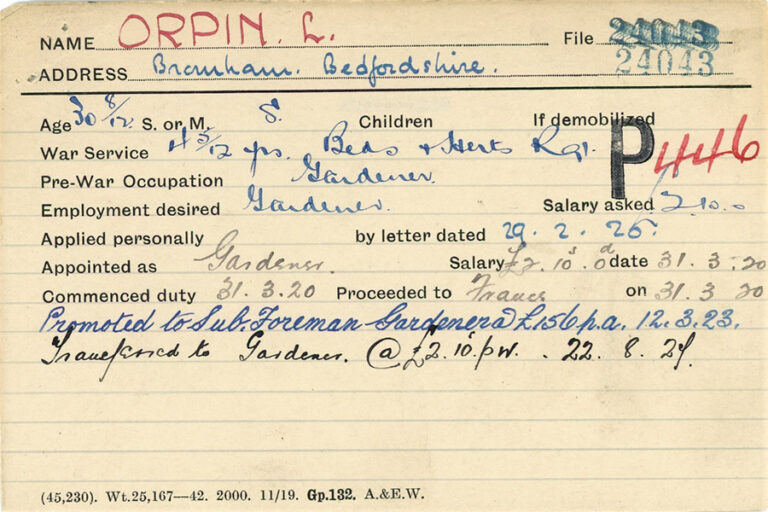 NAME ORPIN. L. File 24043
24043
ADDRESS Bromham. Bedfordshire.
Age 30 8/12 S. or M. S. Children If demobilized
War Service 4 5/12 yrs. Beds & Herts Rgt. P446
Pre-War Occupation Gardener.
Employment desired Gardener. Salary asked £2.10.0
Applied personally by letter dated 29.2.
Appointed as Gardener. Salary £2 10s 0d date 31.3.20
Commenced duty 31.3.20 Proceeded to France on 31.3.20
Promoted to Sub-Foreman Gardener @ £156 p.a. 12.3.23.
Transferred to Gardener. @ £2.10 p.w. . 22. 8.
(45,230). Wt.25,167—42. 2000. 11/19. Gp.132. A.&E.W.